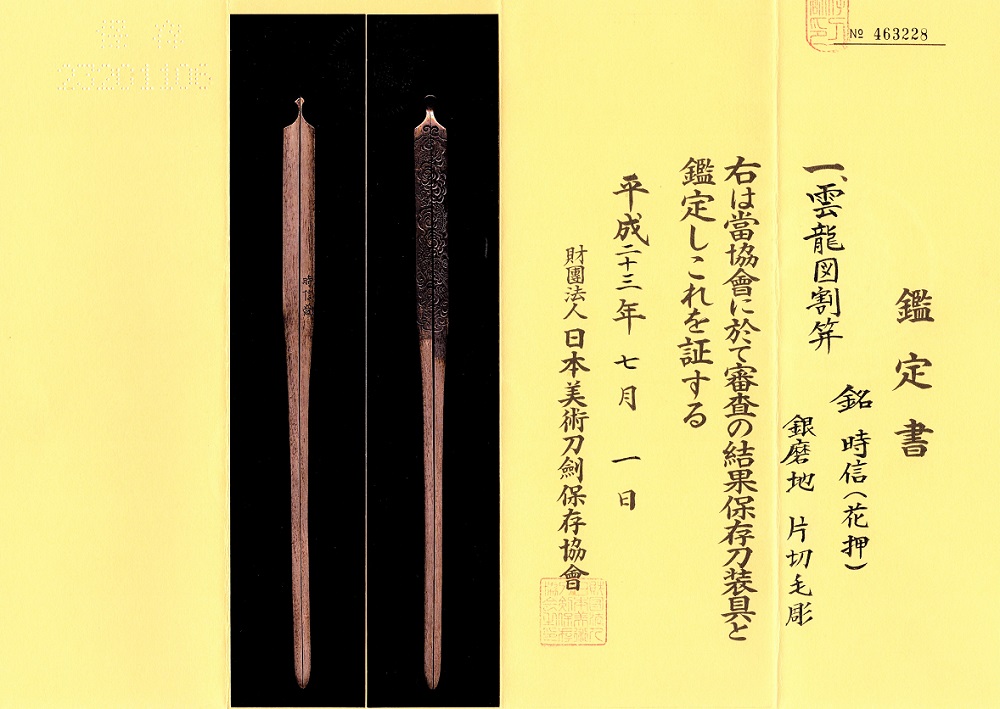 № 463228
鑑定書
一、雲龍図割笄
銘 時信(花押)
銀磨地 片切毛彫
右は當協會に於て審査の結果保存刀装具と
鑑定しこれを証する
平成二十三年 七月 一日
財團法人 日本美術刀劍保存協會
保存
23201106